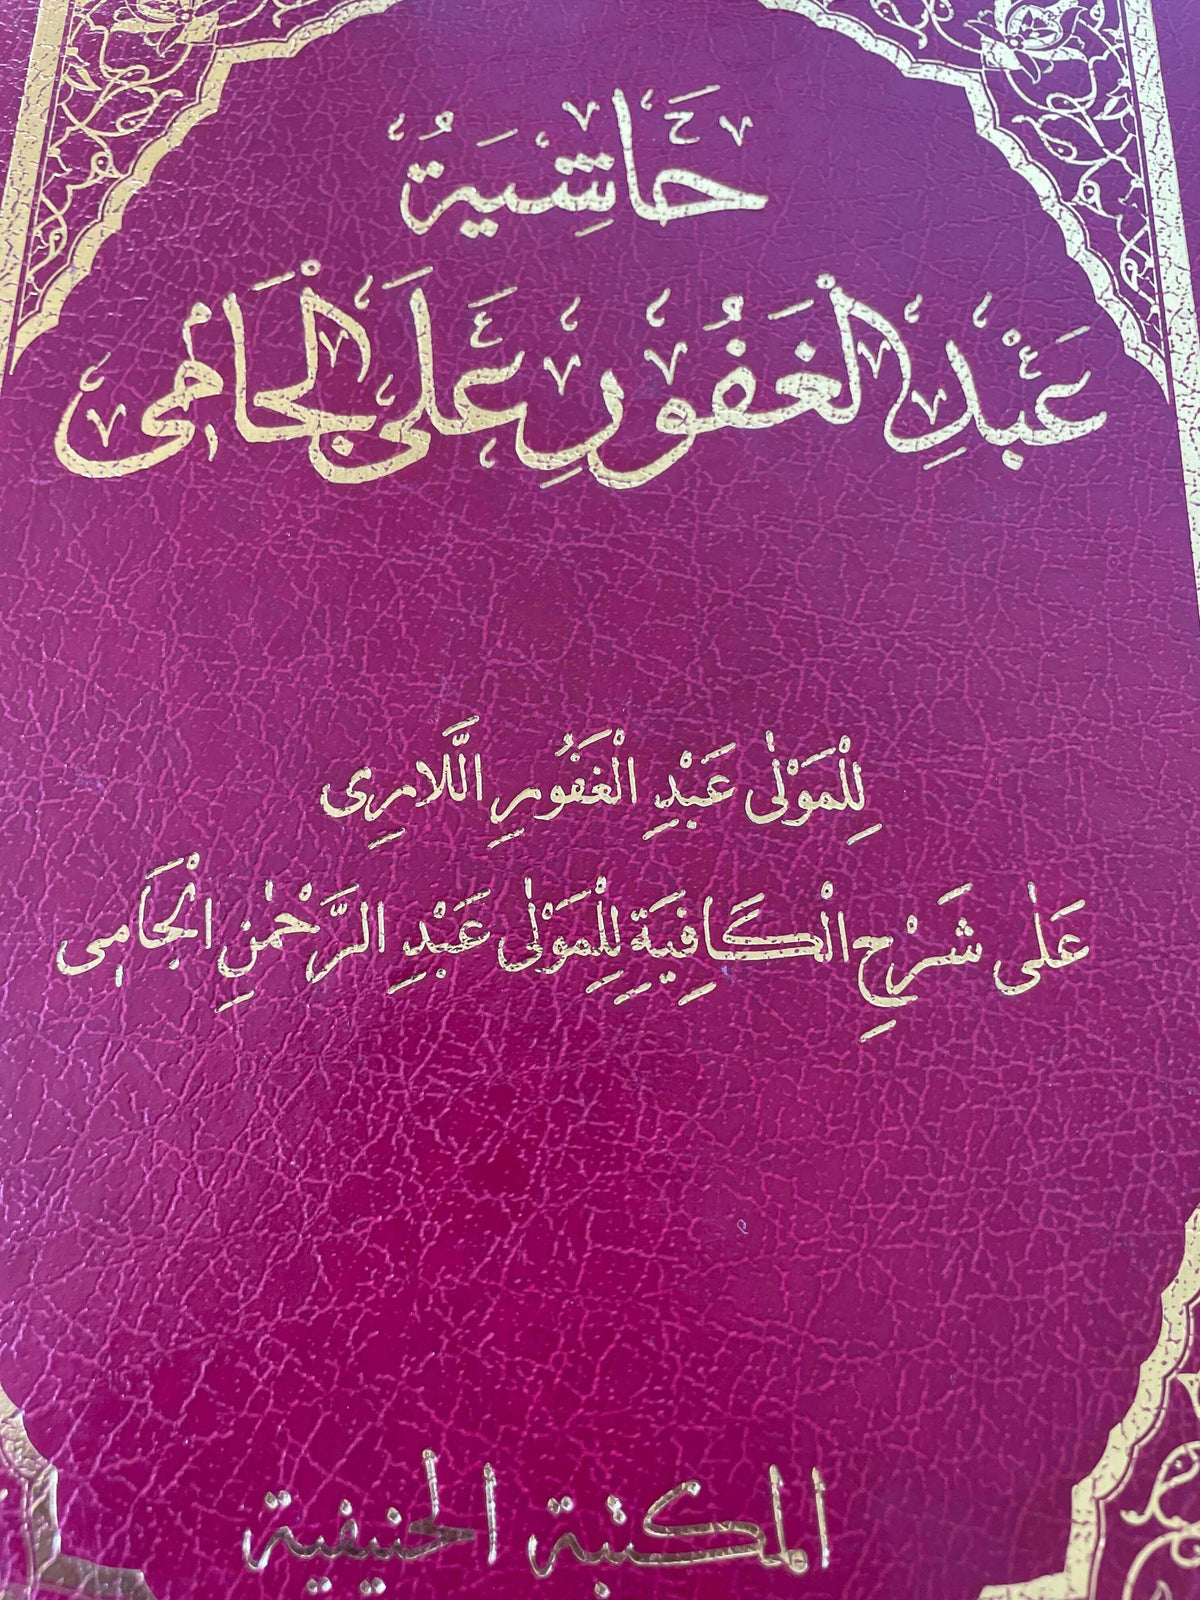 حَاشِيَةُ
عَبْدِ الْغَفُورِ عَلَى الْجَامِى
لِلْمَوْلٰى عَبْدِ الْغَفُورِ اللَّارِى
عَلٰى شَرْحِ الْكَافِيَةِ لِلْمَوْلٰى عَبْدِ الرَّحْمٰنِ الْجَامِى
المكتبة الحنيفية